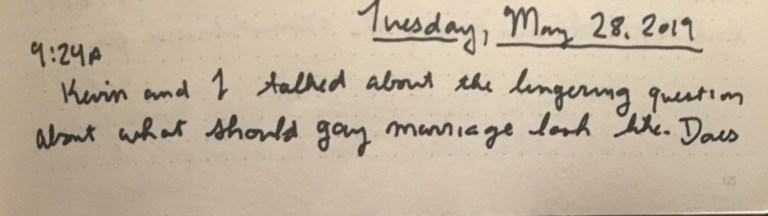 Tuesday, May 28, 2019
9:24A
Kevin and I talked about the lingering question
about what should gay marriage look like. Does
125